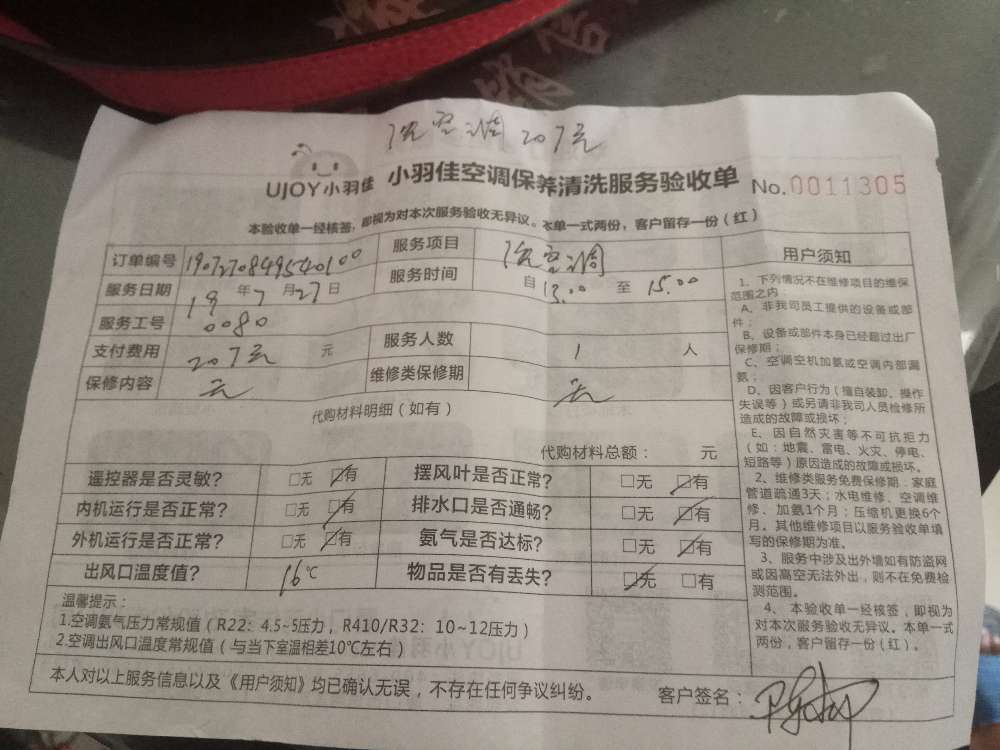 洗空调207元
UJOY小羽佳 小羽佳空调保养清洗服务验收单 No.0011305
本验收单一经核签，即视为对本次服务验收无异议。本单一式两份，客户留存一份（红）
订单编号 1907270849540100 服务项目 洗空调
服务日期 19年7月27日 服务时间 自13.00至15.00
服务工号 0080
支付费用 207元 元 服务人数 1 人
保修内容 无 维修类保修期 无
代购材料明细（如有）
代购材料总额： 元
遥控器是否灵敏？ □无 ☑有 摆风叶是否正常？ □无 ☑有
内机运行是否正常？ □无 ☑有 排水口是否通畅？ □无 ☑有
外机运行是否正常？ □无 ☑有 氨气是否达标？ □无 ☑有
出风口温度值？ 16℃ 物品是否有丢失？ ☑无 □有
温馨提示：
1.空调氨气压力常规值（R22：4.5~5压力，R410/R32：10~12压力）
2.空调出风口温度常规值（与当下室温相差10℃左右）
本人对以上服务信息以及《用户须知》均已确认无误，不存在任何争议纠纷。 客户签名：
用户须知
1、下列情况不在维修项目的维保
范围之内：
A、非我司员工提供的设备或部
件；
B、设备或部件本身已经超过出厂
保修期；
C、空调空机加氨或空调内部漏
氨；
D、因客户行为（擅自装卸、操作
失误等）或另请非我司人员检修所
造成的故障或损坏；
E、因自然灾害等不可抗拒力
（如：地震、雷电、火灾、停电、
短路等）原因造成的故障或损坏。
2、维修类服务免费保修期：家庭
管道疏通3天；水电维修、空调维
修、加氨1个月；压缩机更换6个
月。其他维修项目以服务验收单填
写的保修期为准。
3、服务中涉及出外墙如有防盗网
或因高空无法外出，则不在免费检
测范围。
4、本验收单一经核签，即视为
对本次服务验收无异议。本单一式
两份，客户留存一份（红）。